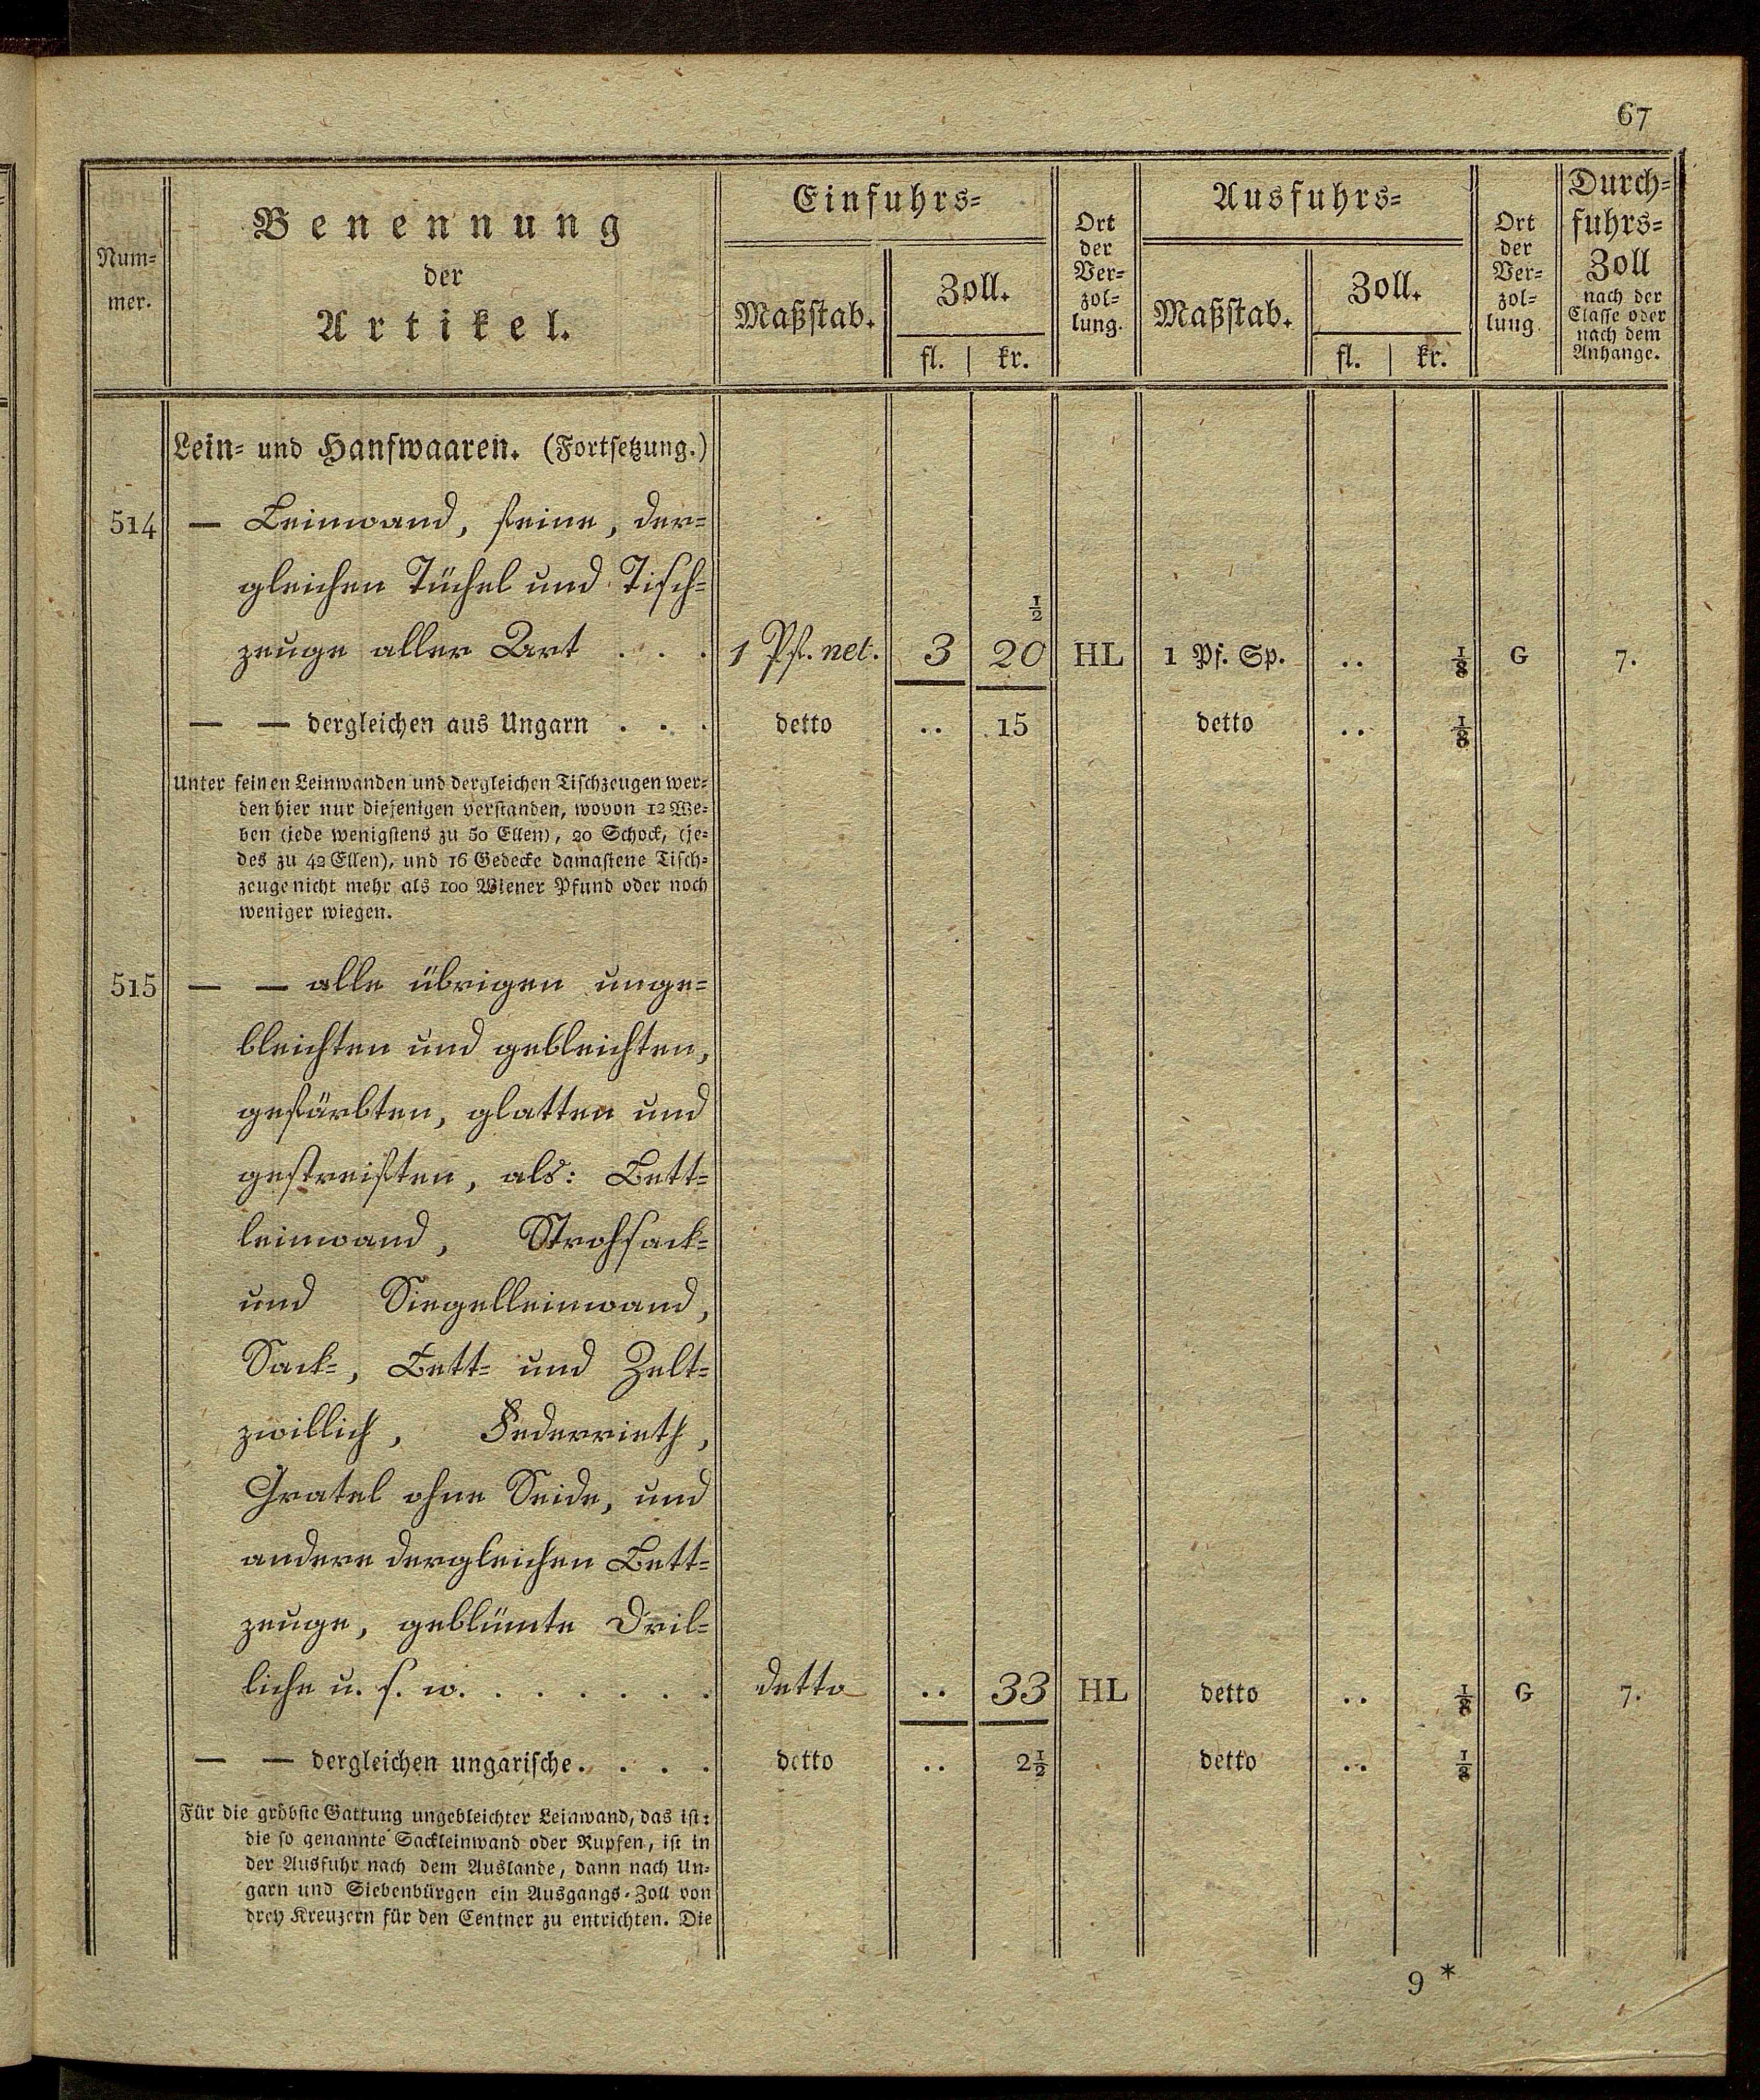 67
Num-
mer.
Benennung
der
Artikel.
Einfuhrs-
Maßstab.
Zoll.
fl. | kr.
Ort
der
Ver-
zol-
lung.
Ausfuhrs-
Maßstab.
Zoll.
fl. | kr.
Ort
der
Ver-
zol-
lung.
Durch-
fuhrs-
Zoll
nach der
Classe oder
nach dem
Anhange.
Lein- und Hanfwaaren. (Fortsetzung.)
514 — Leinwand, feine, der-
gleichen Tüchel und Tisch-
zeuge aller Art . . . 1 Pf. net. 3 20 1/2 HL 1 Pf. Sp. .. 1/8 G 7.
— — dergleichen aus Ungarn . . . detto .. 15 detto .. 1/8
Unter feinen Leinwanden und dergleichen Tischzeugen wer-
den hier nur diejenigen verstanden, wovon 12 We-
ben (jede wenigstens zu 50 Ellen), 20 Schock, (je-
des zu 42 Ellen), und 16 Gedecke damastene Tisch-
zeuge nicht mehr als 100 Wiener Pfund oder noch
weniger wiegen.
515 — — alle übrigen unge-
bleichten und gebleichten,
gefärbten, glatten und
gestreiften, als: Bett-
leinwand, Strohsack-
und Siegelleinwand,
Sack-, Bett- und Zelt-
zwillich, Federrieth,
Gratel ohne Seide, und
andere dergleichen Bett-
zeuge, geblümte Dril-
liche u. s. w. . . . . . . detto .. 33 HL detto .. 1/8 G 7.
— — dergleichen ungarische. . . . detto .. 2 1/2 detto .. 1/8
Für die gröbste Gattung ungebleichter Leinwand, das ist:
die so genannte Sackleinwand oder Rupfen, ist in
der Ausfuhr nach dem Auslande, dann nach Un-
garn und Siebenbürgen ein Ausgangs-Zoll von
drey Kreuzern für den Centner zu entrichten. Die
9 *